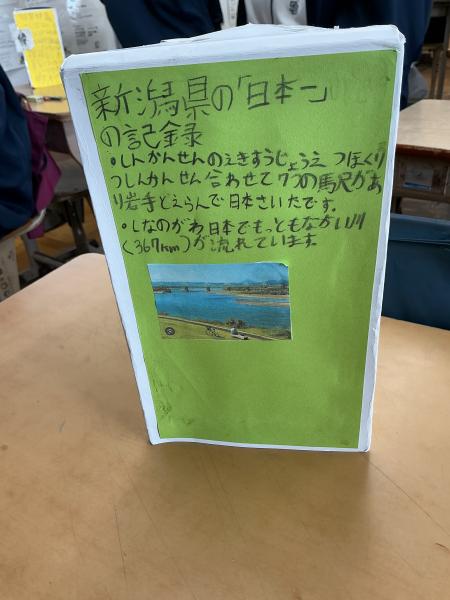 新潟県の「日本一」
の記録
・しんかんせんのえきすうじょうえつほくり
つしんかんせん合わせて7つの馬尺があ
り岩手とならんで日本さいたです。
・しなのがわ日本でもっともながい川
(367km)が流れています。